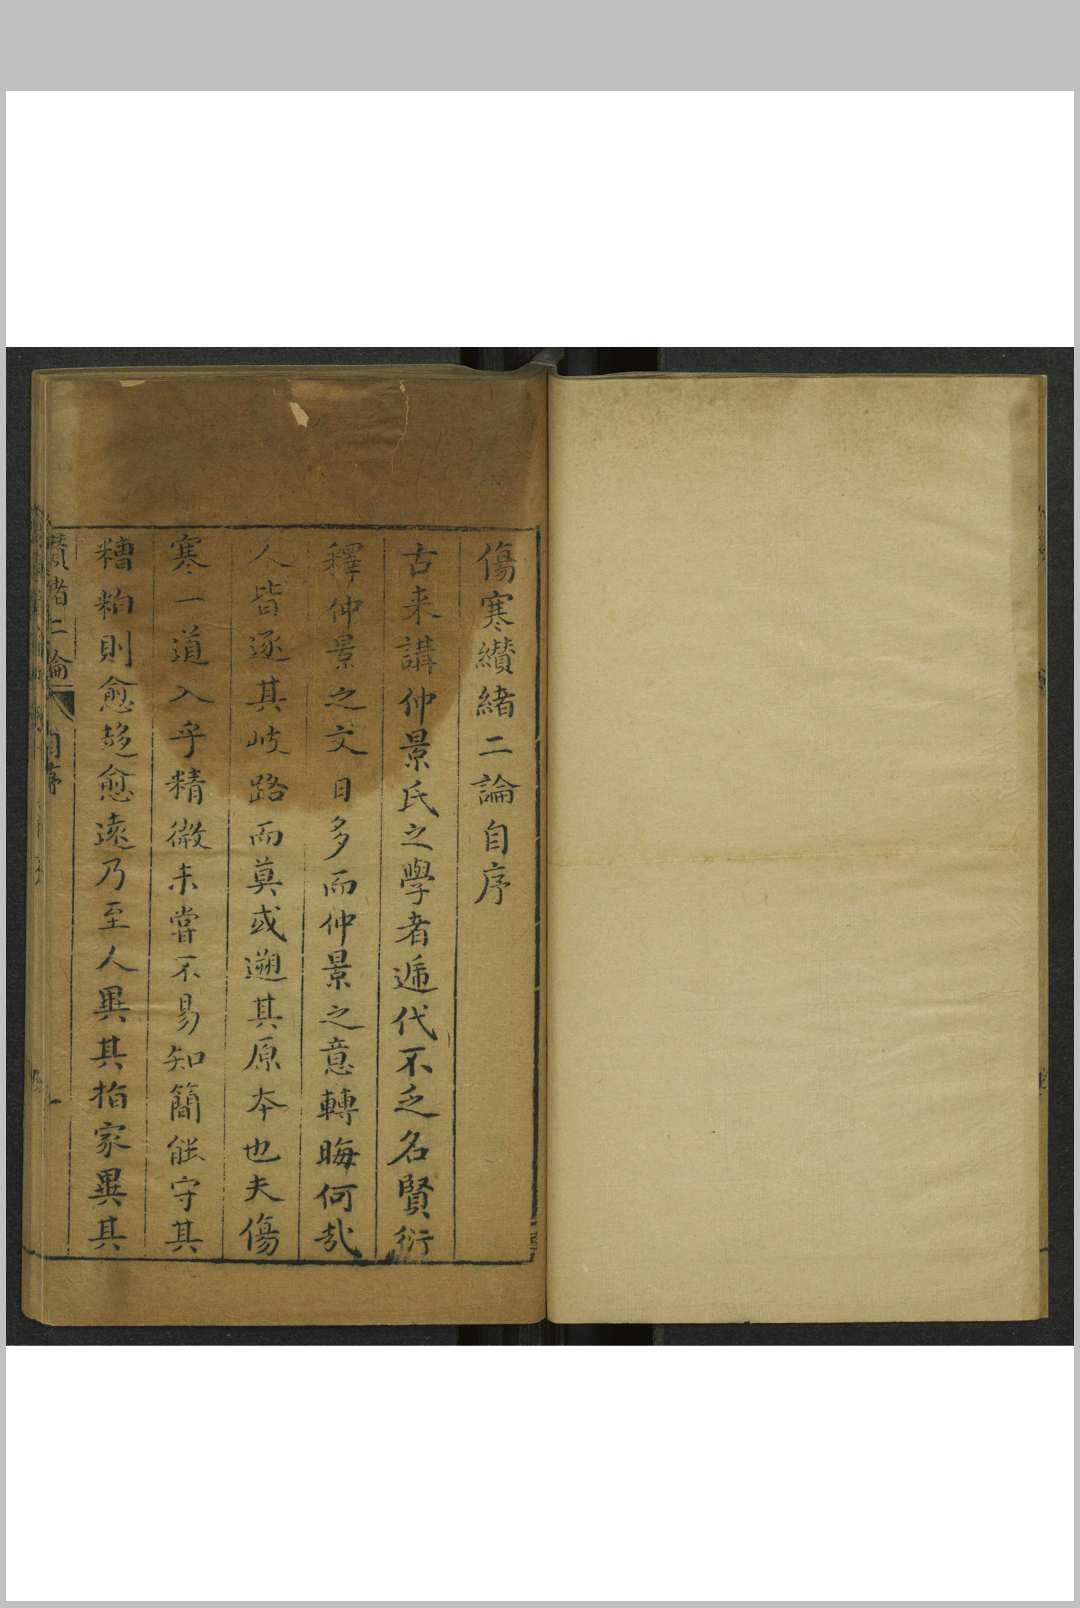 傷寒纉緒二論自序
古来講仲景氏之學者遞代不乏名賢衍
釋仲景之文日多而仲景之意轉晦何哉
人皆逐其岐路而莫或遡其原本也夫傷
寒一道入乎精微未嘗不易知簡能守其
糟粕則愈趍愈遠乃至人異其指家異其
纉緒二論 自序 一